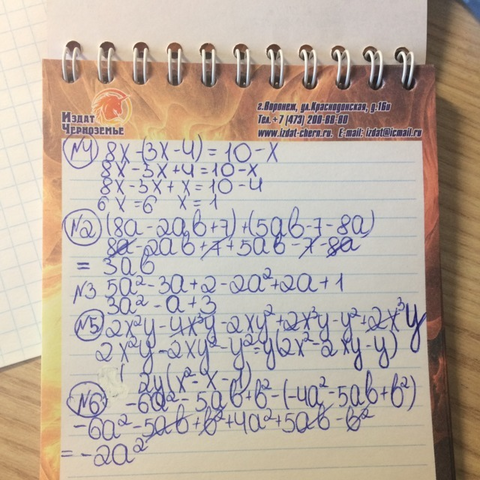 Издат
Черноземье
г.Воронеж, ул.Краснодонская, д.16и
Тел.+7 (473) 200-88-80
www.izdat-chern.ru. E-mail: izdat@icmail.ru
№4 8x-(3x-4)=10-x
8x-3x+4=10-x
8x-3x+x=10-4
6x=6 x=1
№2 (8a-2ab+7)+(5ab-7-8a)
8a-2ab+7+5ab-7-8a
= 3ab
№3 5a²-3a+2-2a²+2a+1
3a²-a+3
№5 2x²y-4x³y-2xy²+2x³y-y²+2x³y
2x²y-2xy²-y²=y(2x²-2xy-y)
2y(x²-x-1)
№6 -6a²-5ab+b²-(-4a²-5ab+b²)
-6a²-5ab+b²+4a²+5ab-b²
=-2a²